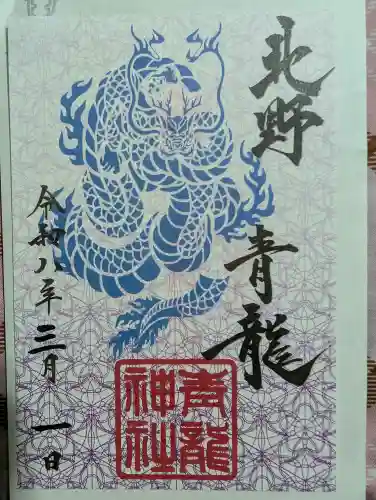 北野
青龍
令和八年三月一日
青龍
神社